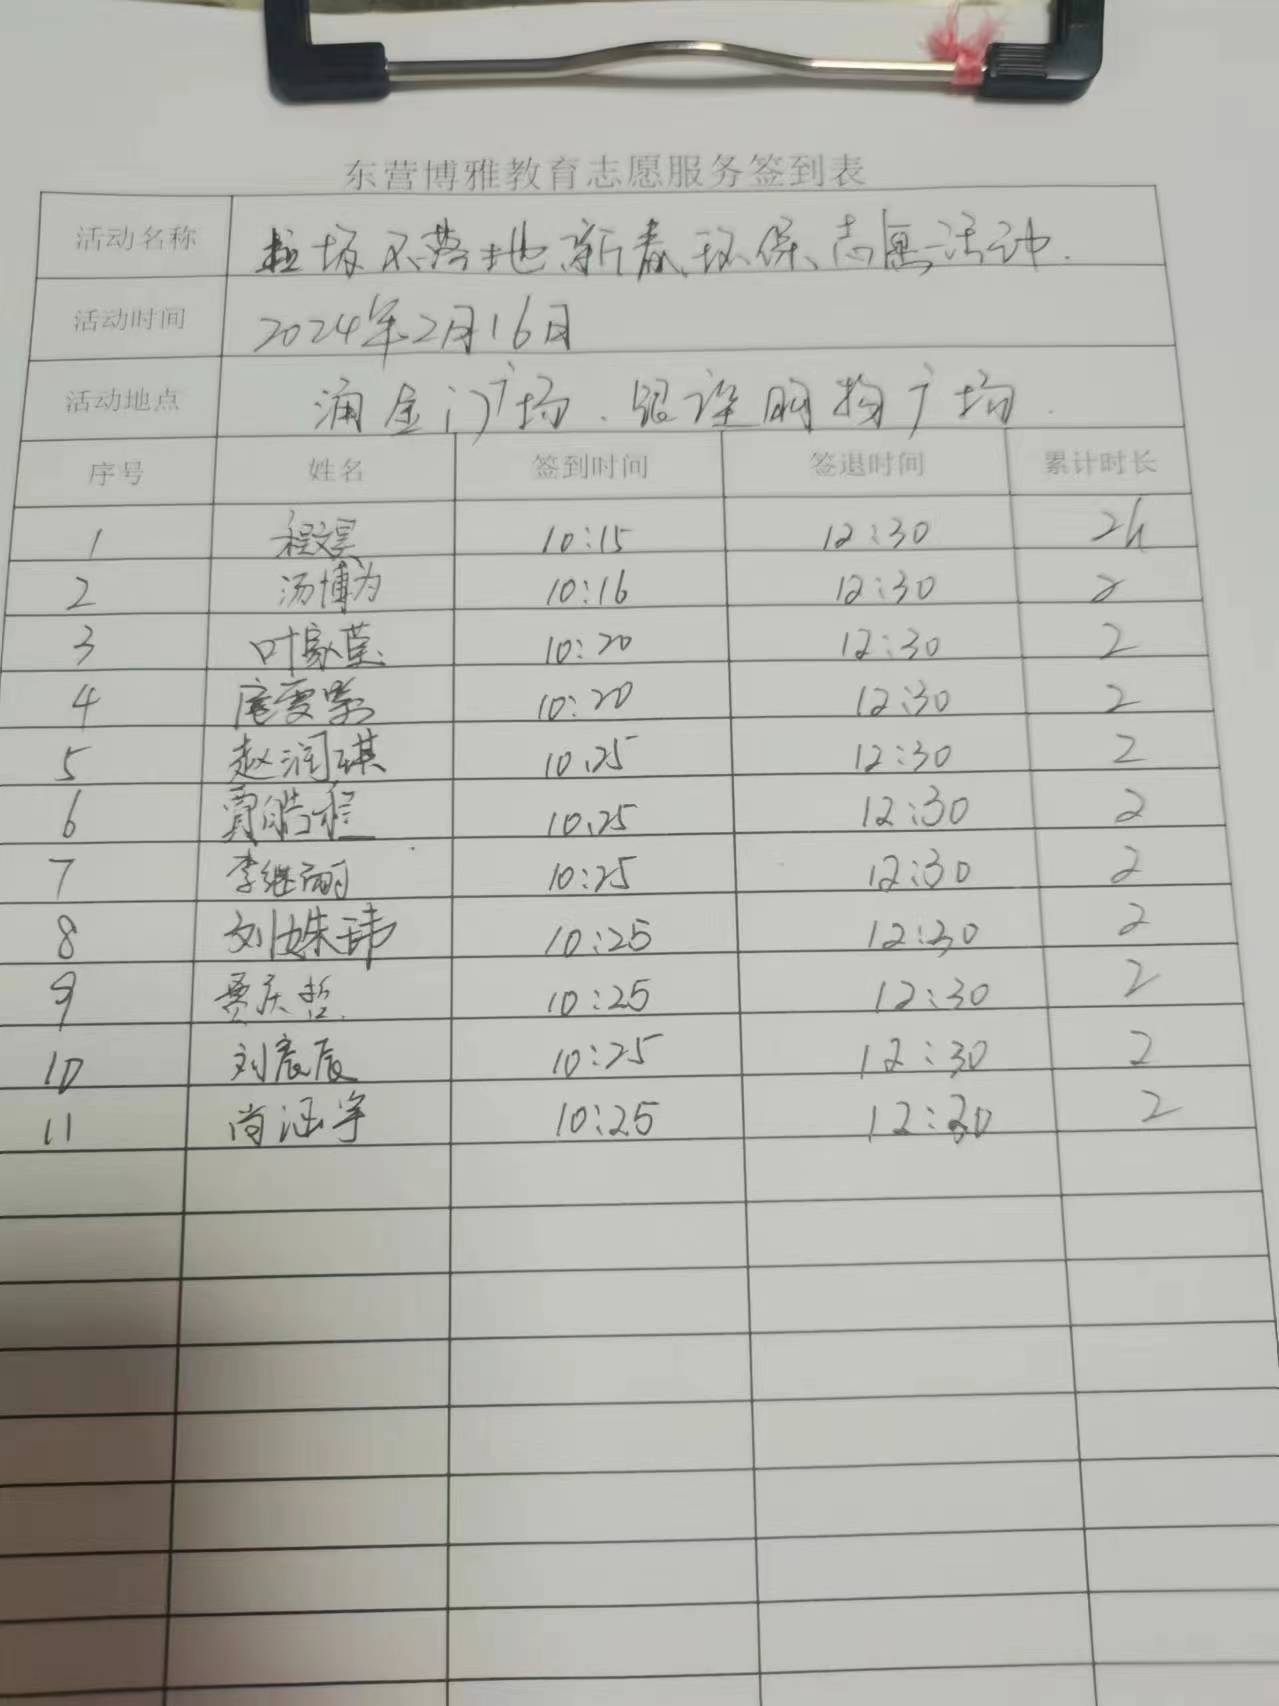 东营博雅教育志愿服务签到表
活动名称 垃圾不落地、新春、环保、志愿活动.
活动时间 2024年2月16日
活动地点 涌金门广场.银座购物广场.
序号 姓名 签到时间 签退时间 累计时长
1 程文昊 10:15 12:30 2h
2 汤博为 10:16 12:30 2
3 叶家莹 10:20 12:30 2
4 10:20 12:30 2
5 赵润琪 10.25 12:30 2
6 贾皓程 10.25 12:30 2
7 李继丽 10:25 12:30 2
8 刘姝玮 10:25 12:30 2
9 贾庆哲 10:25 12:30 2
10 刘宸辰 10:25 12:30 2
11 尚涵宇 10:25 12:30 2